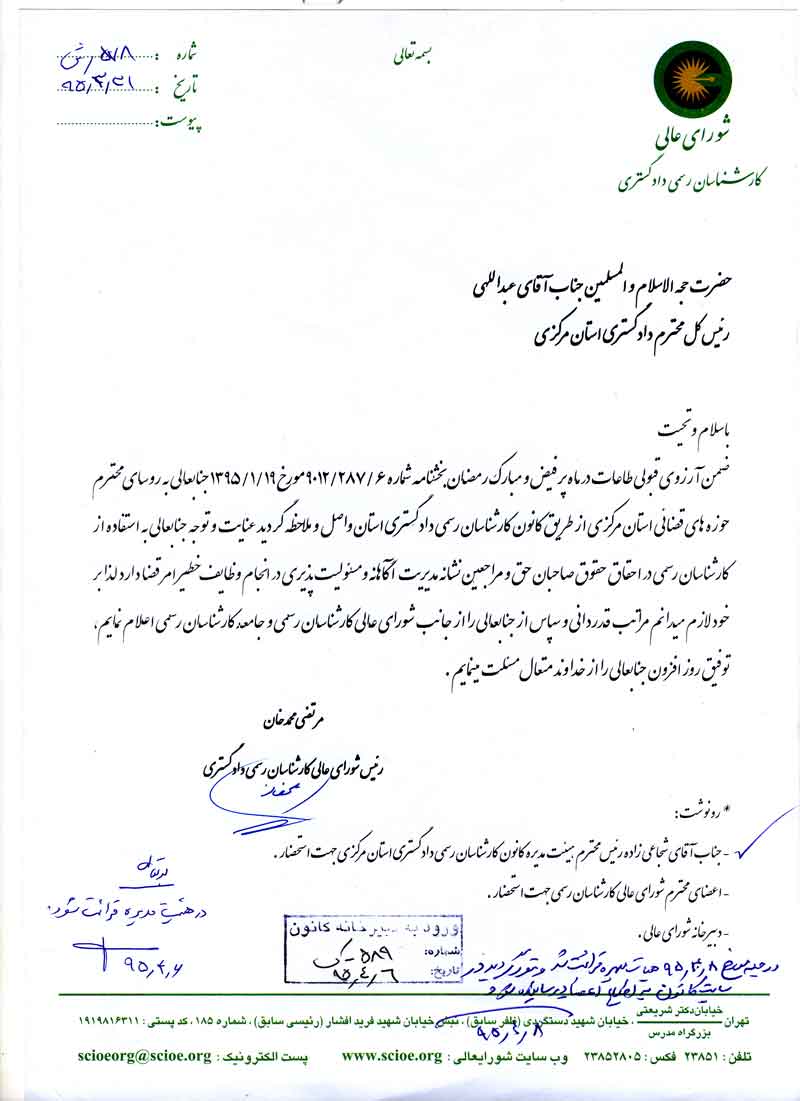 بسمه تعالی
شماره : ۵۱۸/ش
تاریخ : ۹۵,۳,۳۱
پیوست :
شورای عالی
کارشناسان رسمی دادگستری
حضرت حجه الاسلام و المسلمین جناب آقای عبداللهی
رئیس کل محترم دادگستری استان مرکزی
باسلام و تحیت
ضمن آرزوی قبولی طاعات در ماه پر فیض و مبارک رمضان بخشنامه شماره ۹۰۱۲/۲۸۷/۶ مورخ ۱۳۹۵/۱/۱۹ جنابعالی به روسای محترم
حوزه های قضائی استان مرکزی از طریق کانون کارشناسان رسمی دادگستری استان واصل و ملاحظه گردید عنایت و توجه جنابعالی به استفاده از
کارشناسان رسمی در احقاق حقوق صاحبان حق و مراجعین نشانه مدیریت آگاهانه و مسئولیت پذیری در انجام وظایف خطیر امر قضا دارد لذا بر
خود لازم میدانم مراتب قدردانی و سپاس از جنابعالی را از جانب شورای عالی کارشناسان رسمی و جامعه کارشناسان رسمی اعلام نمایم،
توفیق روز افزون جنابعالی را از خداوند متعال مسئلت مینمایم .
مرتضی محمدخان
رئیس شورای عالی کارشناسان رسمی دادگستری
* رونوشت:
- جناب آقای شجاعی زاده رئیس محترم هیئت مدیره کانون کارشناسان رسمی دادگستری استان مرکزی جهت استحضار .
- اعضای محترم شورای عالی کارشناسان رسمی جهت استحضار .
- دبیرخانه شورای عالی .
بسمه تعالی
در هیئت مدیره قرائت شود.
۹۵,۴,۶
ورود به دبیرخانه کانون
شماره: ۵۸۹-ک
تاریخ: ۹۵,۴,۶
در جلسه مورخ ۹۵,۴,۸ هیات مدیره قرائت شد و
سایت کانون
۹۵,۴,۸
تهران خیابان دکتر شریعتی ، خیابان شهید دستگردی (ظفر سابق) ، نبش خیابان شهید فرید افشار (رئیسی سابق) ، شماره ۱۸۵ ، کد پستی : ۱۹۱۹۸۱۶۳۱۱
بزرگراه مدرس
تلفن : ۲۳۸۵۱ فکس : ۲۳۸۵۲۸۰۵ وب سایت شورایعالی : www.scioe.org پست الکترونیک : scioeorg@scioe.org